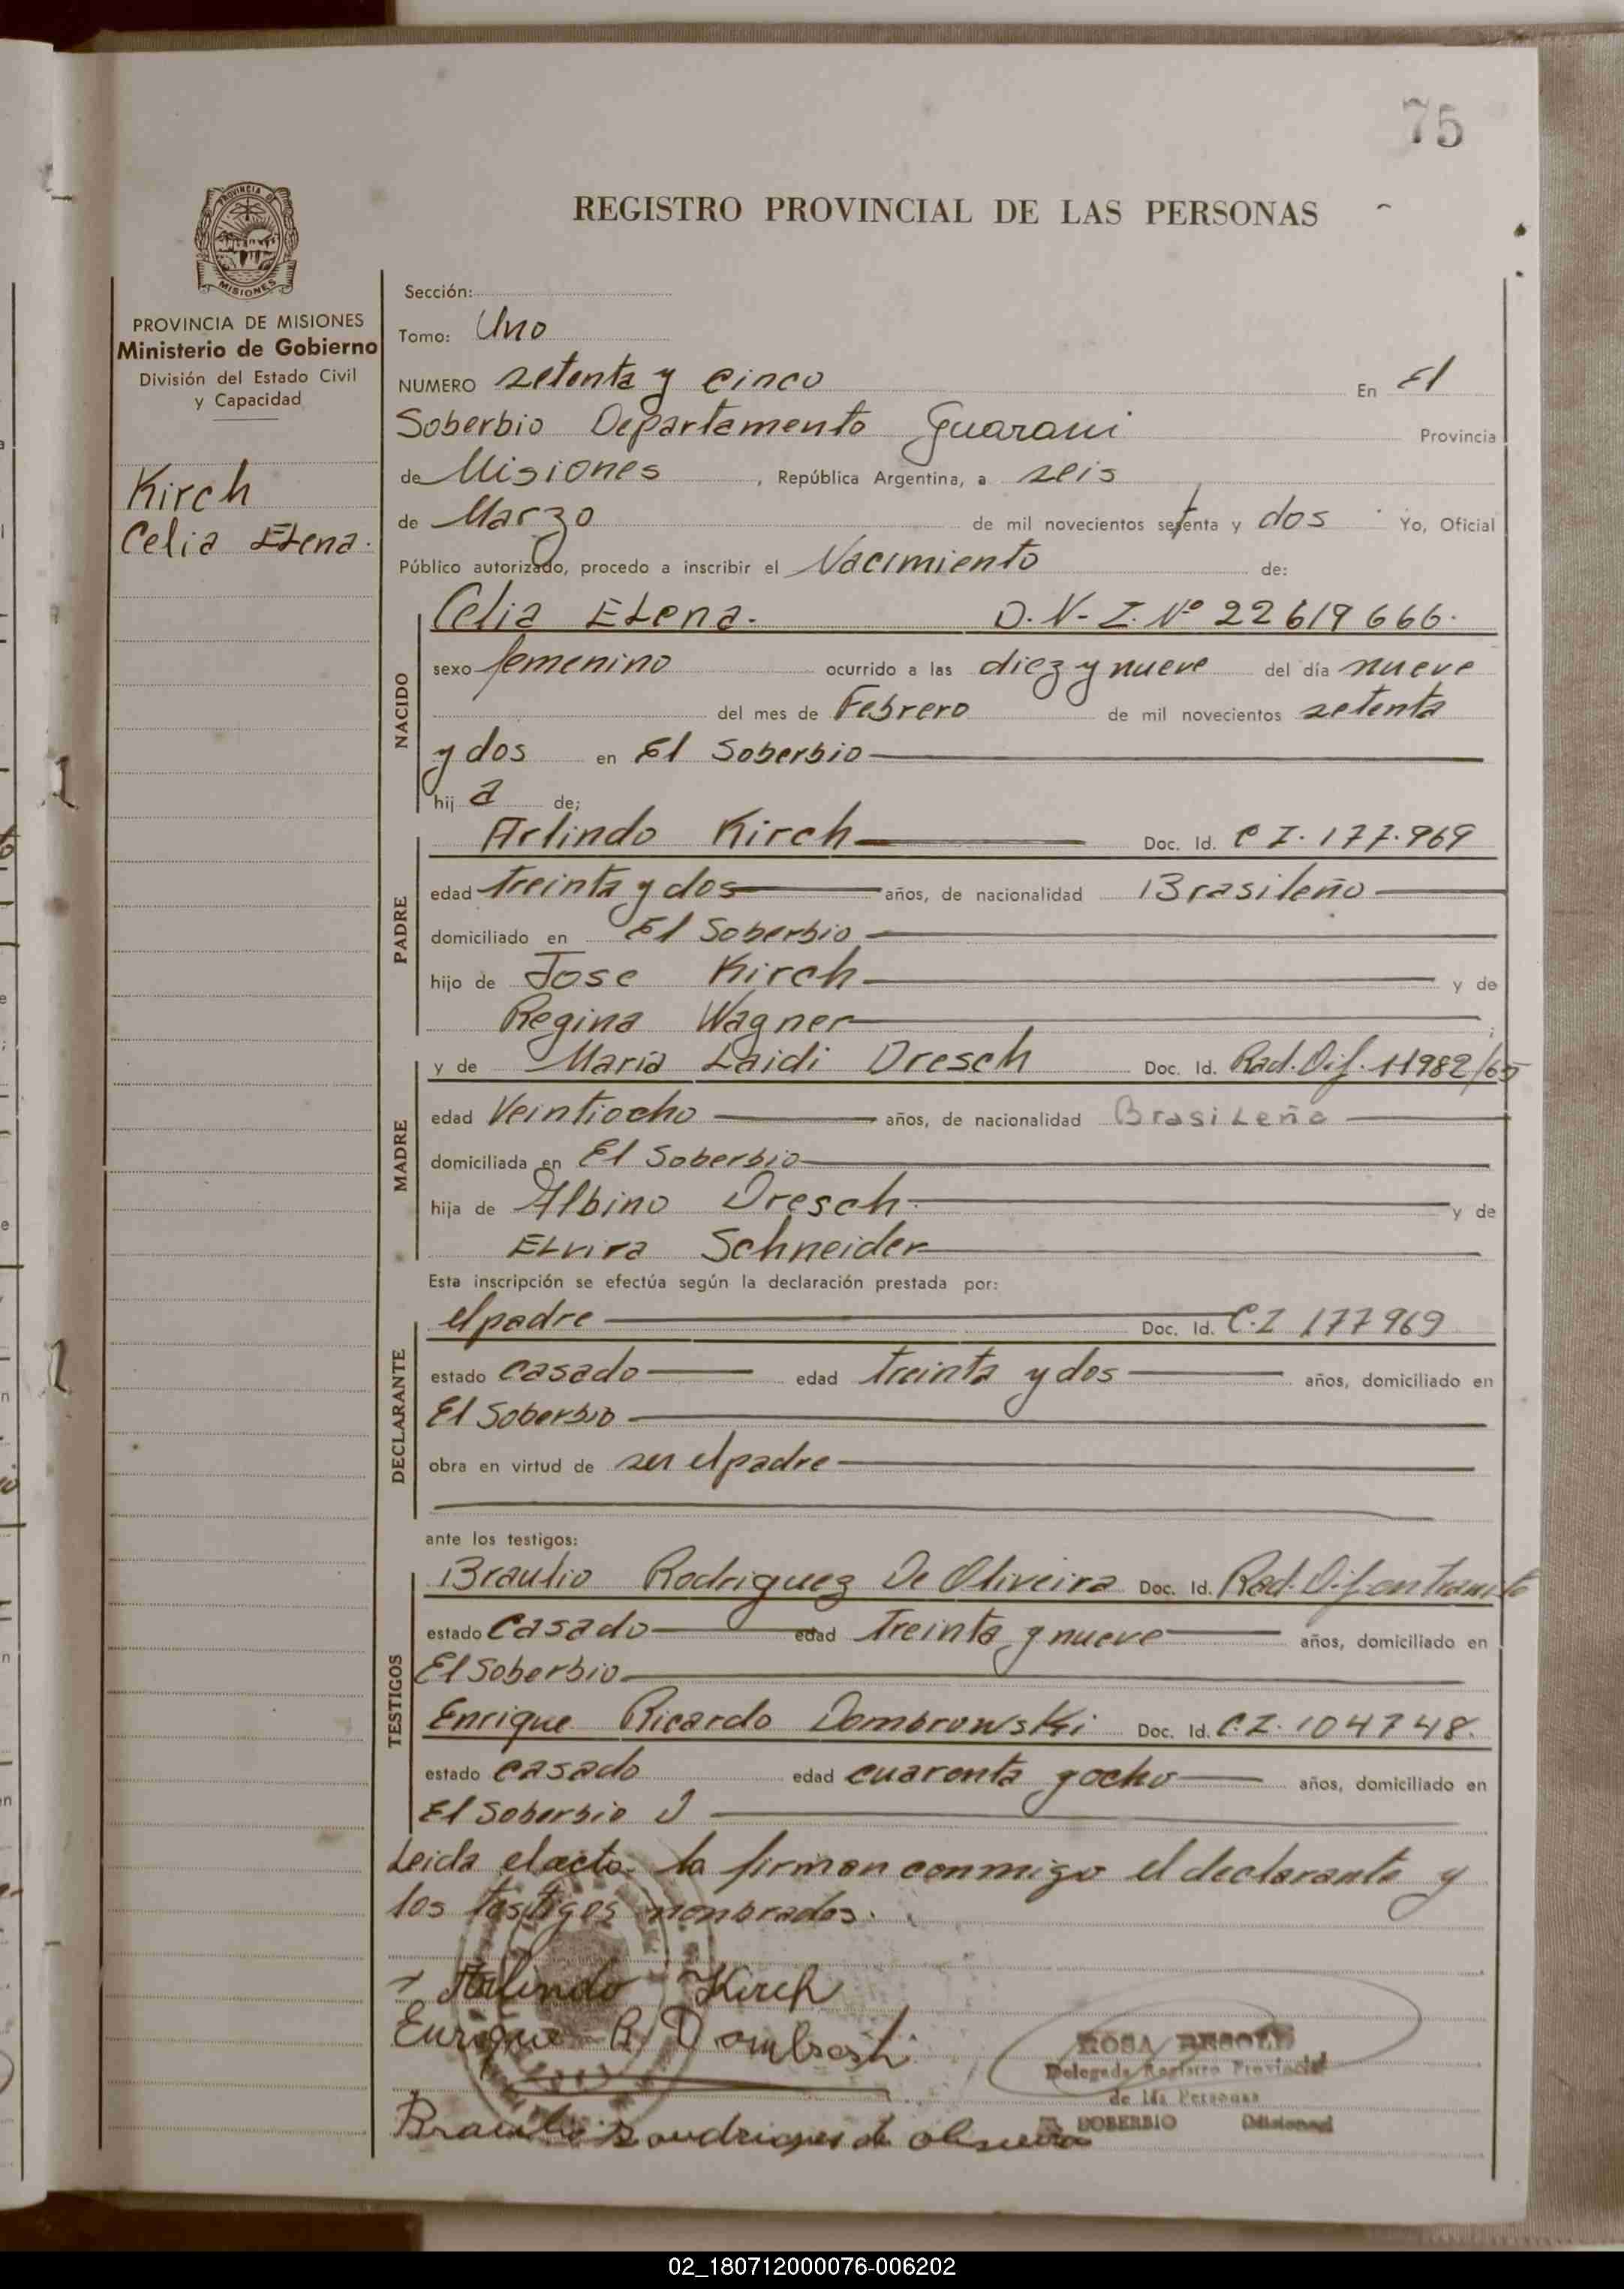 75
REGISTRO PROVINCIAL DE LAS PERSONAS
PROVINCIA DE
MISIONES
PROVINCIA DE MISIONES
Ministerio de Gobierno
División del Estado Civil
y Capacidad
Kirch
Celia Elena.
Sección:
Tomo: Uno
NUMERO setenta y cinco En El
Soberbio Departamento Guarani Provincia
de Misiones, República Argentina, a seis
de Marzo de mil novecientos setenta y dos Yo, Oficial
Público autorizado, procedo a inscribir el Nacimiento de:
NACIDO
Celia Elena. D.N.I. Nº 22619666.
sexo femenino ocurrido a las diez y nueve del día nueve
del mes de Febrero de mil novecientos setenta
y dos en El Soberbio
hij a de;
PADRE
Arlindo Kirch Doc. Id. C I. 177.969
edad treinta y dos años, de nacionalidad Brasileño
domiciliado en El Soberbio
hijo de Jose Kirch y de
Regina Wagner;
MADRE
y de Maria Laidi Dresch Doc. Id. Rad. Dif. 11982/65
edad Veintiocho años, de nacionalidad Brasileña
domiciliada en El Soberbio
hija de Albino Dresch. y de
Elvira Schneider
Esta inscripción se efectúa según la declaración prestada por:
DECLARANTE
el padre Doc. Id. C.I 177969
estado casado edad treinta y dos años, domiciliado en
El Soberbio
obra en virtud de ser el padre
ante los testigos:
TESTIGOS
Braulio Rodriguez De Oliveira Doc. Id. Rad. Dif en tramite
estado casado edad treinta y nueve años, domiciliado en
El Soberbio
Enrique Ricardo Dombrowski Doc. Id. C.I. 104748.
estado casado edad cuarenta y ocho años, domiciliado en
El Soberbio
Leida el acta la firman conmigo el declarante y
los testigos nombrados.
Arlindo Kirch
Enrique R Dombroski
ROSA
Delegada Registro Provincial
de las Personas
SOBERBIO Misiones
Braulio Roudrigues de oliveira
02_180712000076-006202